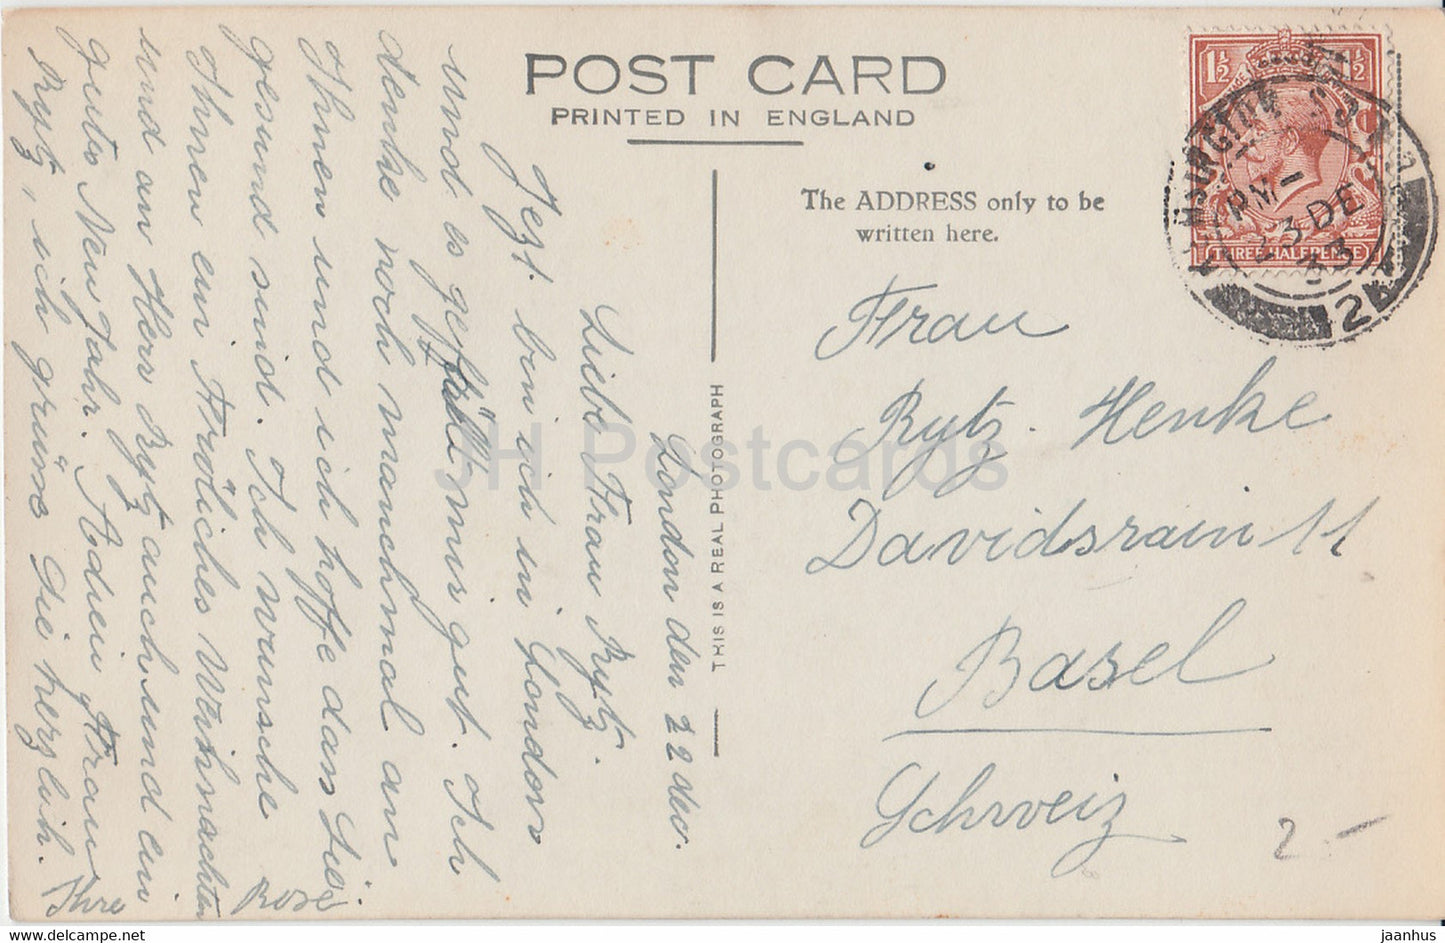 POST CARD
PRINTED IN ENGLAND
The ADDRESS only to be
written here.
THIS IS A REAL PHOTOGRAPH
1½ 1½
THREE HALFPENCE
KENSINGTON
PM
23 DE
33
Frau
Rytz-Henke
Davidsrain 11
Basel
Schweiz
2-
London den 22 dev.
Liebe Frau Rytz.
Jezt bin ich in London
und es gefällt mir gut. Ich
denke noch manchmal an
Ihnen und ich hoffe dass Sie
gesund sind. Ich wünsche
Ihnen ein Fröliches Weihnachten
und an Herr Rytz auch und ein
gutes New Jahr. Adieu Frau
Rytz, ich grüsse Sie herzlich.
Ihre Rose.
JH Postcards
https://www.jhpostcards.com
jaanhus